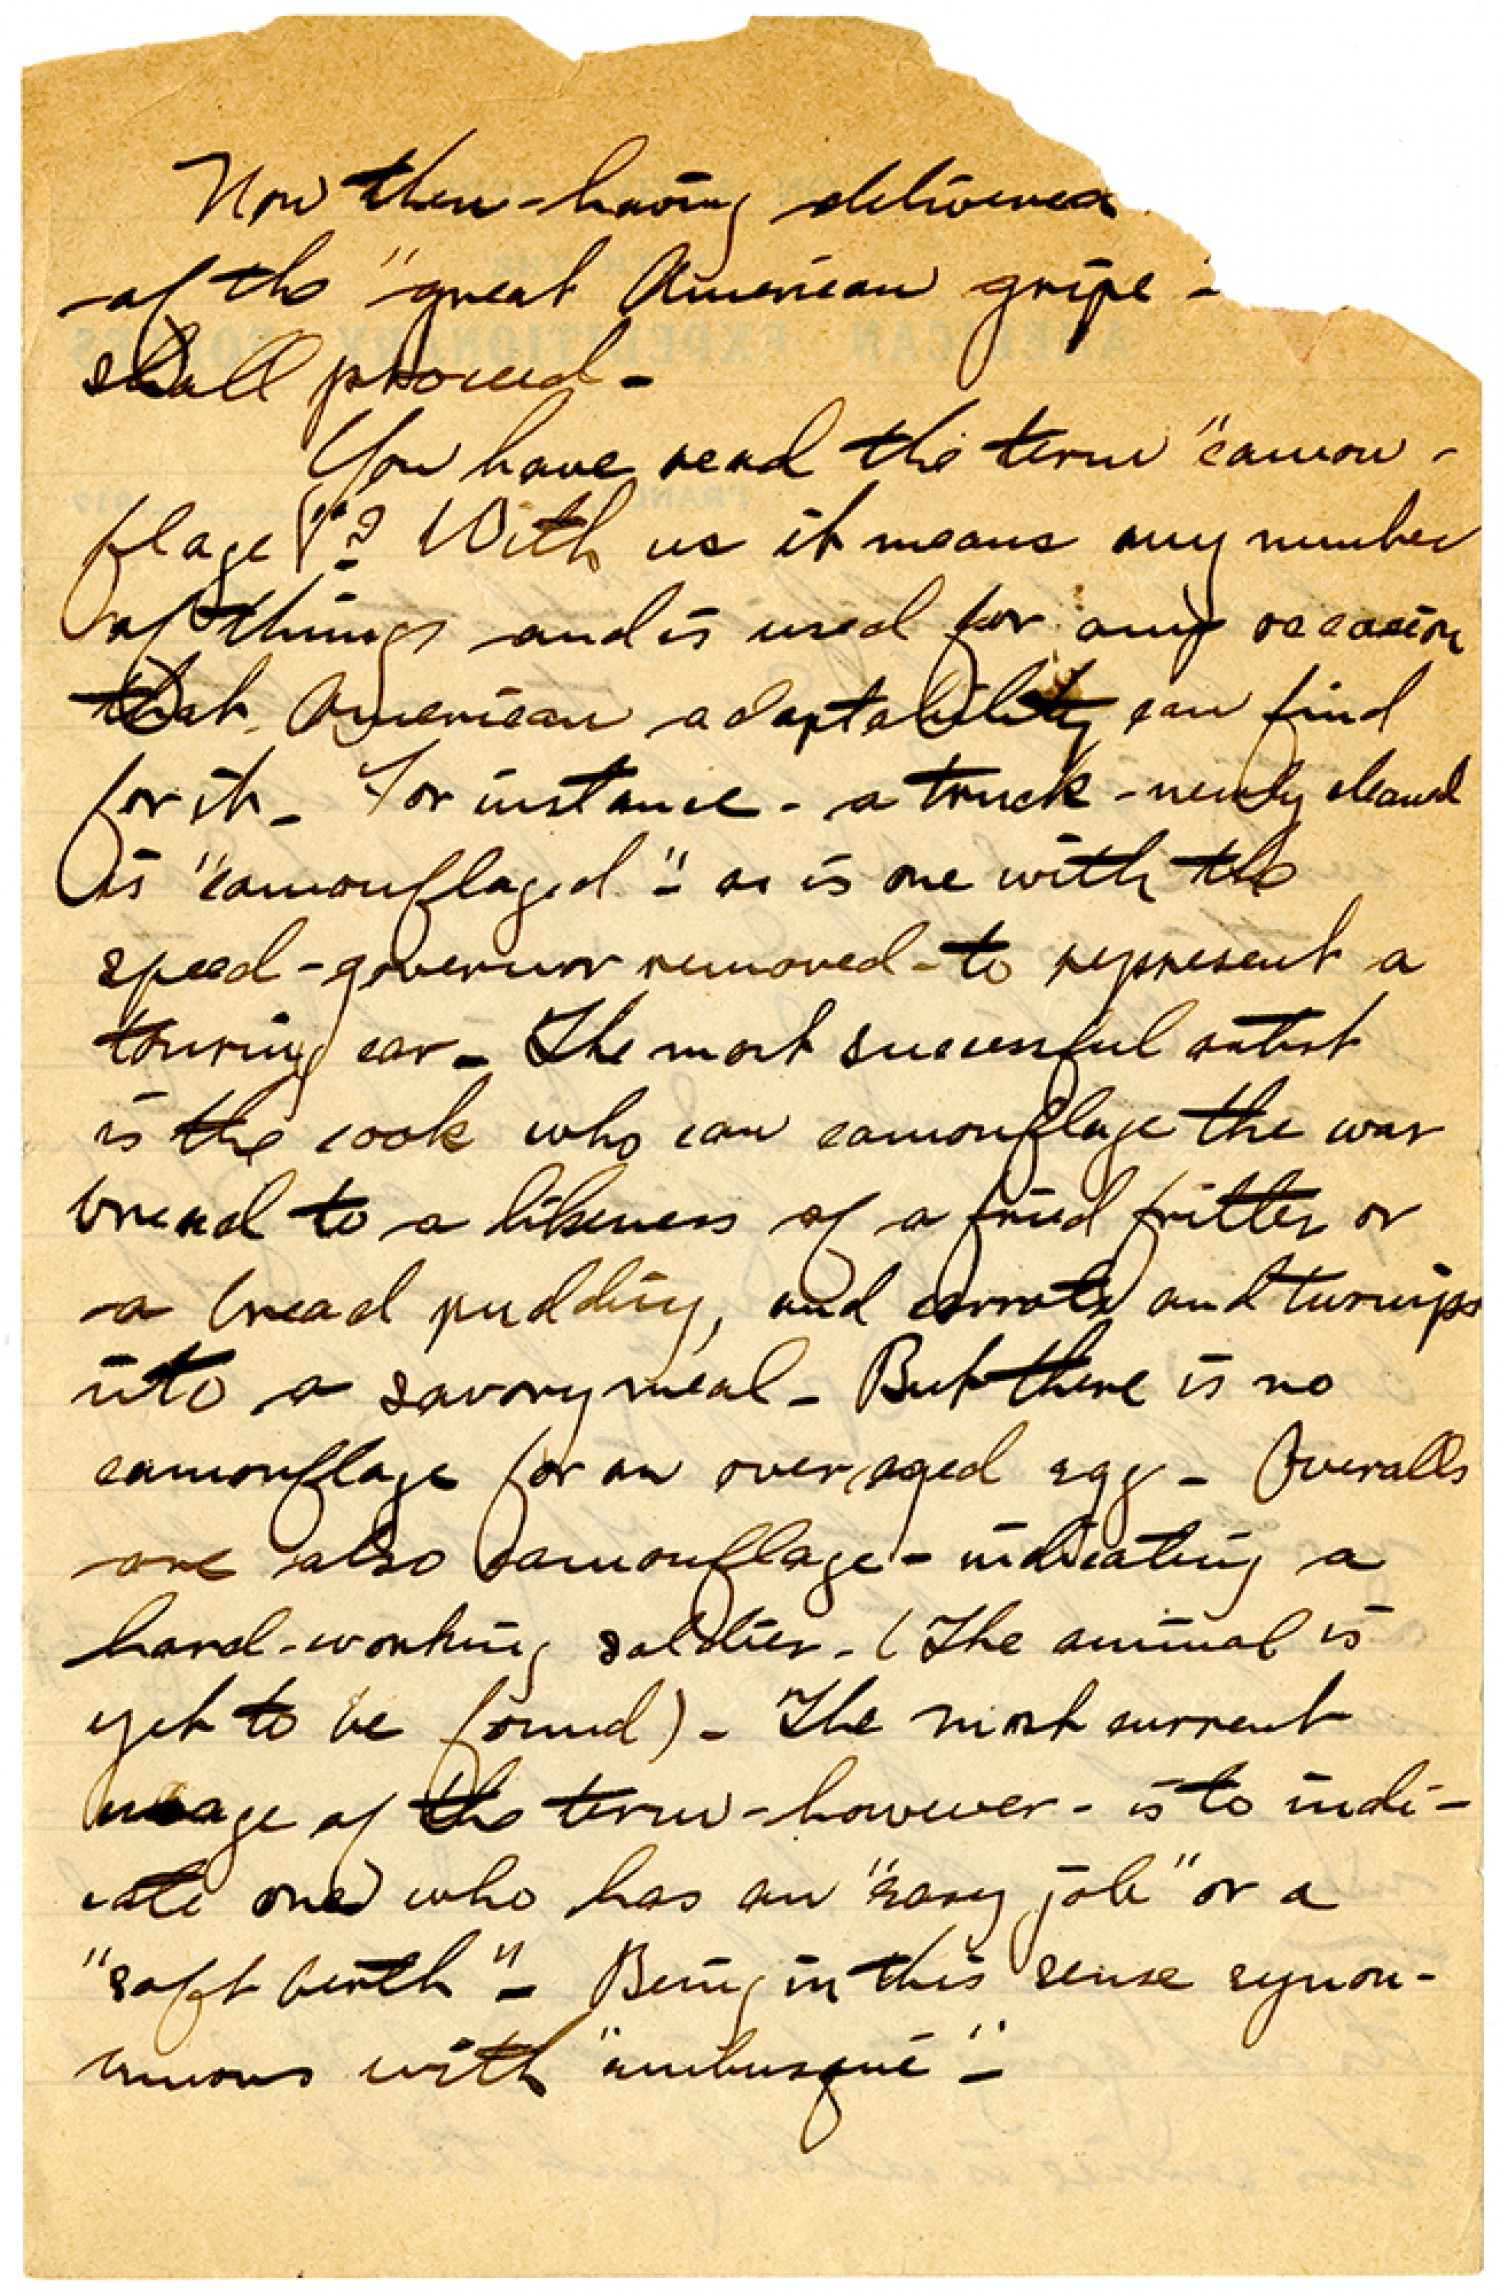 Now then - having delivered
of the "great American gripe" -
shall proceed -
You have read the term "camou-
flage"? With us it means any number
of things and is used for any occasion
that American adaptability can find
for it - For instance - a truck - newly cleaned
is "camouflaged" - as is one with the
speed-governor removed - to represent a
touring car - The most successful artist
is the cook who can camouflage the war
bread to a likeness of a fried fritter or
a bread pudding, and carrots and turnips
into a savory meal - But there is no
camouflage for an over aged egg - Overalls
are also camouflage - indicating a
hard-working soldier - (The animal is
yet to be found) - The most current
usage of the term - however - is to indi-
cate one who has an "easy job" or a
"soft birth" - Being in this sense synon-
umous with "embusqué" -